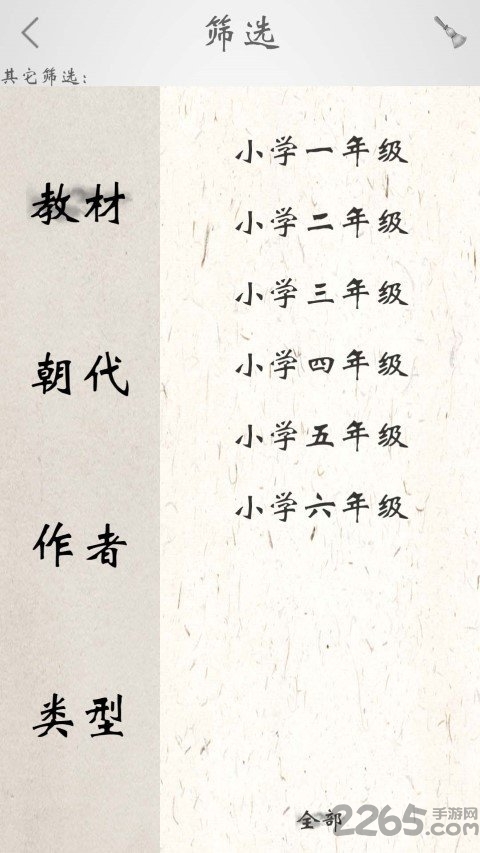 筛选
其它筛选：
教材
朝代
作者
类型
小学一年级
小学二年级
小学三年级
小学四年级
小学五年级
小学六年级
全部
2265手游网
.COM